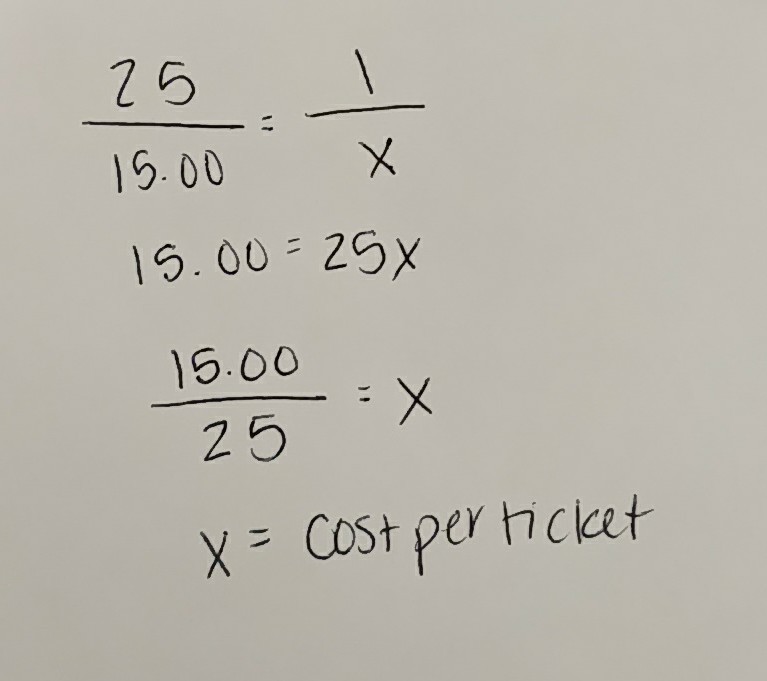 25/15.00 = 1/x
15.00 = 25x
15.00/25 = x
x = cost per ticket